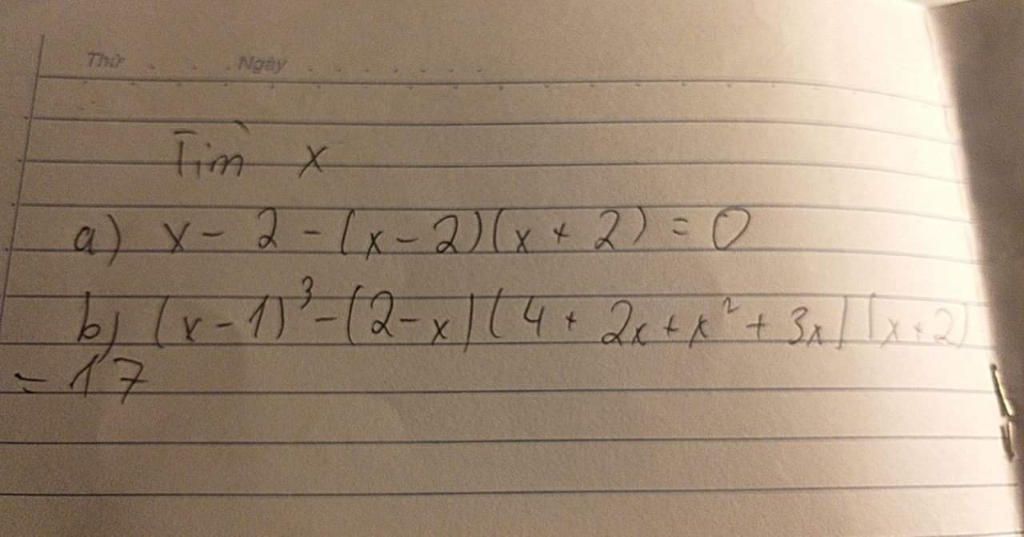 Thứ Ngày
Tìm x
a) x - 2 - (x - 2)(x + 2) = 0
b) (x - 1)³ - (2 - x)(4 + 2x + x² + 3x)(x + 2)
= 17